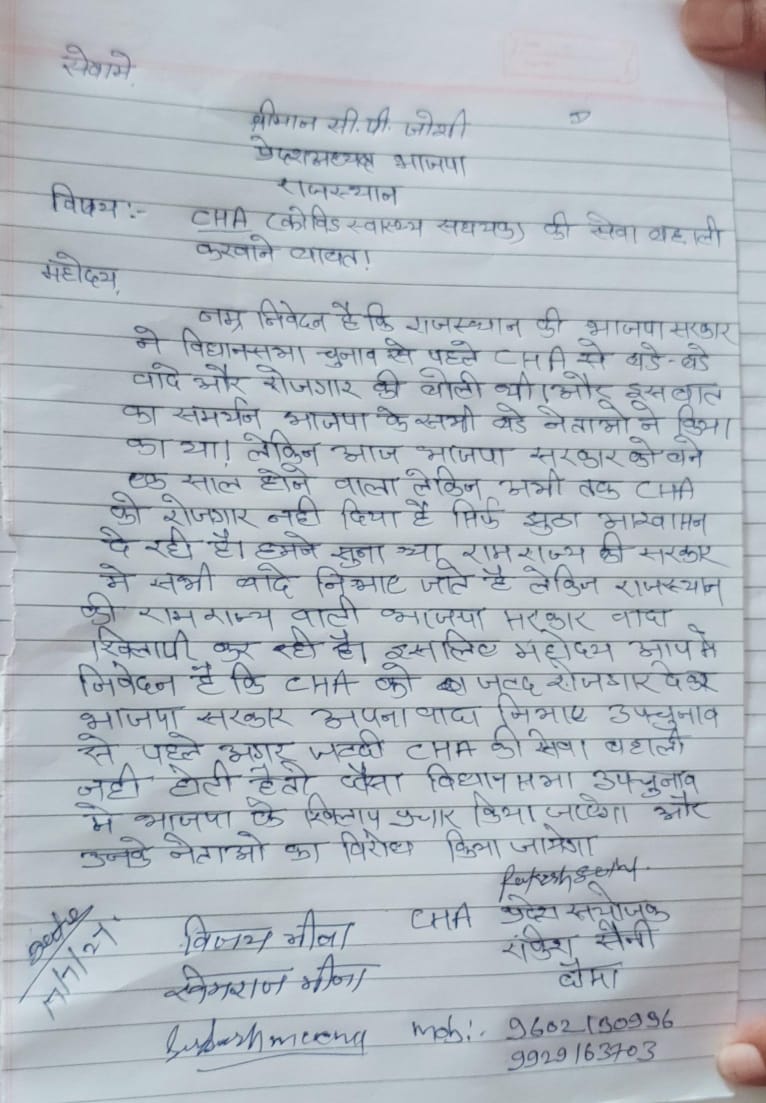 सेवामे,
श्रीमान सी.पी. जोशी
प्रदेशअध्यक्ष भाजपा
राजस्थान
विषय:- CHA (कोविड स्वास्थ्य सहायक) की सेवा बहाली
करवाने बाबत!
महोदय,
नम्र निवेदन है कि राजस्थान की भाजपा सरकार
ने विधानसभा चुनाव से पहले CHA से बडे-बडे
वादे और रोजगार की बोली थी। और इस बात
का समर्थन भाजपा के सभी बडे नेताओ ने किया
का था! लेकिन आज भाजपा सरकार को बने
एक साल होने वाला लेकिन अभी तक CHA
को रोजगार नही दिया है सिर्फ झुठा आश्वासन
दे रही है। हमने सुना था, रामराज्य की सरकार
मे सभी वादे निभाए जाते है लेकिन राजस्थान
की रामराज्य वाली भाजपा सरकार वादा
खिलापी कर रही है। इसलिए महोदय आपसे
निवेदन है कि CHA को जल्द रोजगार देकर
भाजपा सरकार अपना वादा निभाए उपचुनाव
से पहले अगर जल्दी CHA की सेवा बहाली
नही होती है तो दौसा विधानसभा उपचुनाव
मे भाजपा के खिलाप प्रचार किया जाएगा और
उनके नेताओ का विरोध किया जायेगा
Rakesh Saini
CHA प्रदेश संयोजक
राकेश सैनी
दौसा
विजय मीना
खेमराज मीना
Subash meena
Mob:- 9602190996
9929163703